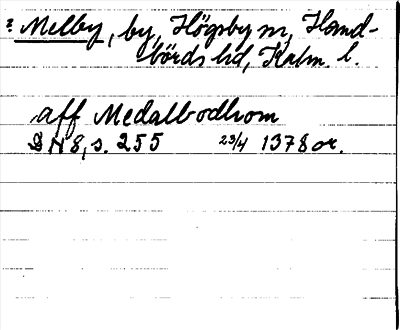 ? Melby, by, Högsby sn, Hand-
börds hd, Kalm. l.
aff Medalbodhom
DN 8, s. 255 23/4 1378 or.